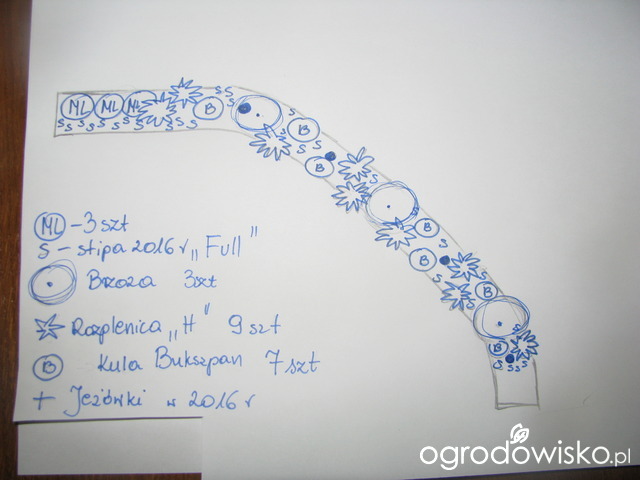 ML ML ML B
S S
S S S S S S S S S
S
S
B
S S
B
S
B
S
B
S
S B
S
B
S S S S
ML - 3 szt
S - stipa 2016 r „Full"
Brzoza 3szt
Rozplenica „H" 9 szt
B Kula Bukszpan 7 szt
+ Jeżówki w 2016 r
ogrodowisko.pl